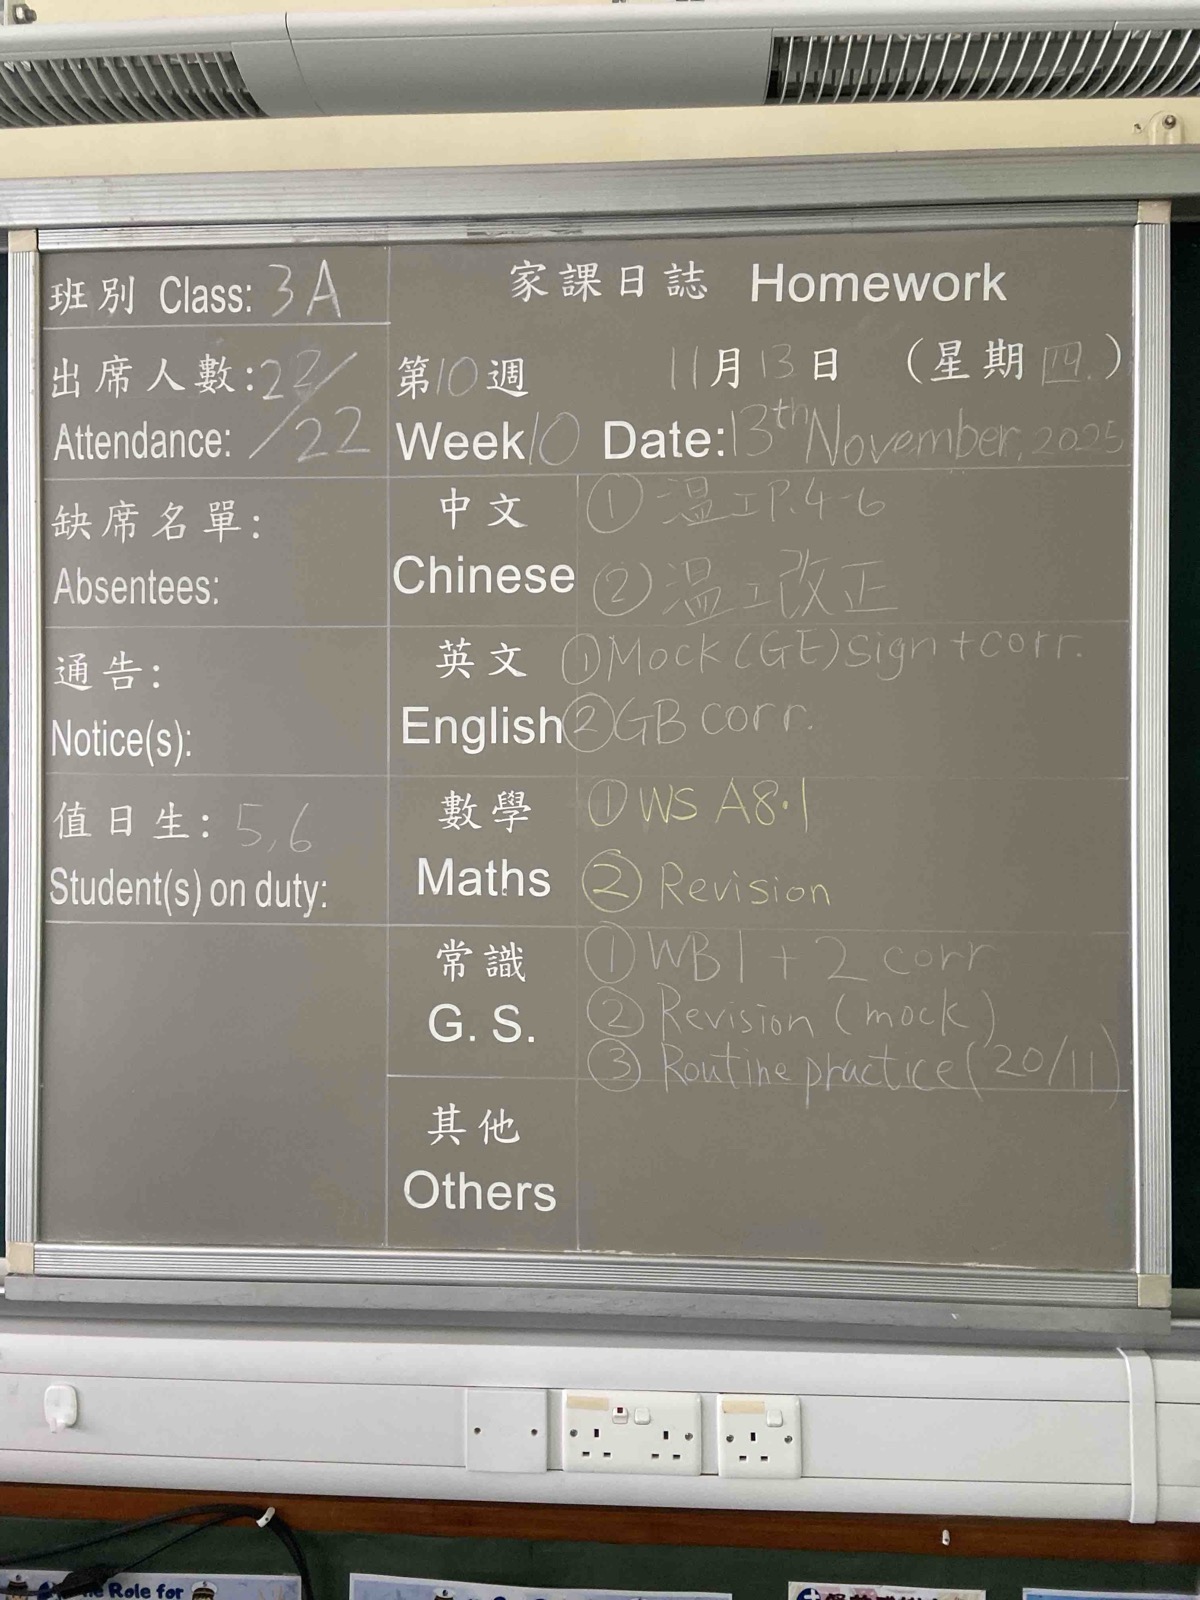 班別 Class: 3A
出席人數: 22/
Attendance: /22
缺席名單:
Absentees:
通告:
Notice(s):
值日生: 5,6
Student(s) on duty:
家課日誌 Homework
第10週 11月13日 (星期四.)
Week 10 Date: 13th November, 2025
中文 ① 温工P.4-6
Chinese ② 温工改正
英文 ① Mock (GE) sign + corr.
English ② GB corr.
數學 ① WS A8.1
Maths ② Revision
常識 ① WB1 + 2 corr
G. S. ② Revision (mock)
③ Routine practice (20/11)
其他
Others
Role for